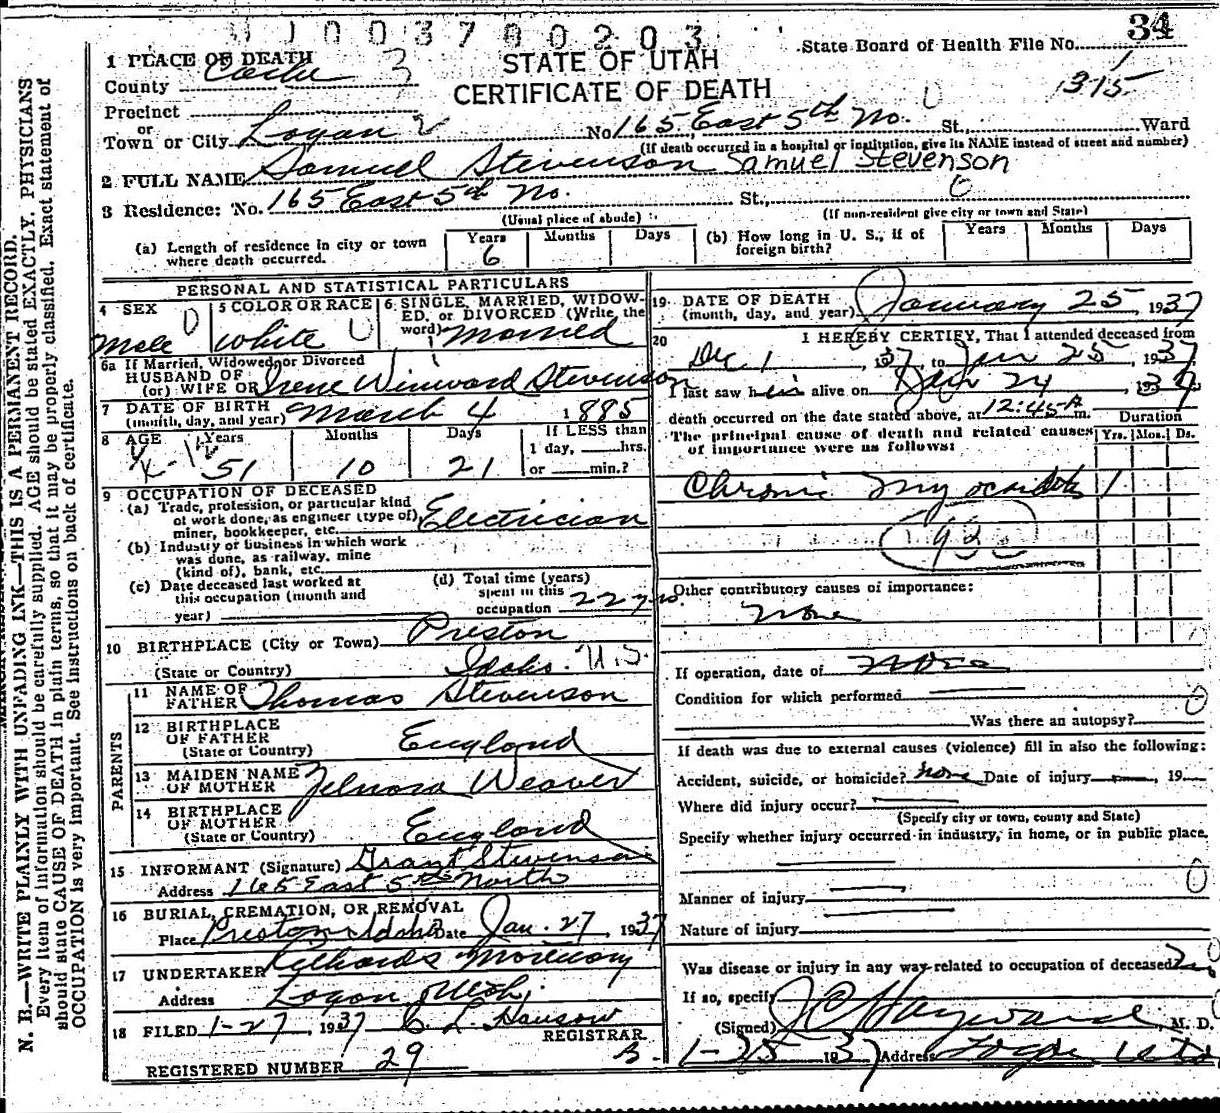 U 1 0 0 3 7 0 0 2 0 3
34
State Board of Health File No.
1315
STATE OF UTAH
CERTIFICATE OF DEATH
1 PLACE OF DEATH
County Cache 3
Precinct
or
Town or City Logan No 165 East 5th No. St., Ward
(If death occurred in a hospital or institution, give its NAME instead of street and number)
2 FULL NAME Samuel Stevenson Samuel Stevenson
3 Residence: No. 165 East 5th No. St.,
(Usual place of abode) (If non-resident give city or town and State)
(a) Length of residence in city or town where death occurred. Years 6 Months Days
(b) How long in U. S., if of foreign birth? Years Months Days
PERSONAL AND STATISTICAL PARTICULARS
4 SEX Male
5 COLOR OR RACE White
6 SINGLE, MARRIED, WIDOWED, or DIVORCED (Write the word) Married
6a If Married, Widowed or Divorced
HUSBAND OF
(or) WIFE OF Irene Winward Stevenson
7 DATE OF BIRTH
(month, day, and year) March 4 1885
8 AGE Years 51 Months 10 Days 21
If LESS than
1 day, ___hrs.
or ___min.?
9 OCCUPATION OF DECEASED
(a) Trade, profession, or particular kind
of work done, as engineer (type of)
miner, bookkeeper, etc. Electrician
(b) Industry or business in which work
was done, as railway, mine
(kind of), bank, etc.
(c) Date deceased last worked at
this occupation (month and
year)
(d) Total time (years)
spent in this
occupation 22 yrs.
10 BIRTHPLACE (City or Town) Preston
(State or Country) Idaho. U.S.
PARENTS
11 NAME OF
FATHER Thomas Stevenson
12 BIRTHPLACE
OF FATHER
(State or Country) England
13 MAIDEN NAME
OF MOTHER Weaver
14 BIRTHPLACE
OF MOTHER
(State or Country) England
15 INFORMANT (Signature) Grant Stevenson
Address 165 East 5th North
16 BURIAL, CREMATION, OR REMOVAL
Place Preston, Idaho Date Jan. 27, 1937
17 UNDERTAKER Richards Mortuary
Address Logan, Utah
18 FILED 1-27 1937
REGISTRAR
REGISTERED NUMBER 29
19 DATE OF DEATH
(month, day, and year) January 25, 1937
20 I HEREBY CERTIFY, That I attended deceased from
Dec 1, 1937, to Jan 25, 1937
I last saw him alive on Jan 24, 1937
death occurred on the date stated above, at 12:45 A m.
Duration
The principal cause of death and related causes
of importance were as follows:
Yrs. Mos. Ds.
Chronic Myocarditis 1
Other contributory causes of importance:
None
If operation, date of None
Condition for which performed
Was there an autopsy?
If death was due to external causes (violence) fill in also the following:
Accident, suicide, or homicide? None Date of injury , 19
Where did injury occur?
(Specify city or town, county and State)
Specify whether injury occurred in industry, in home, or in public place.
Manner of injury
Nature of injury
Was disease or injury in any way related to occupation of deceased? No
If so, specify
(Signed) J C Hayward, M. D.
1-25 1937 Address Logan Utah
N. B.—WRITE PLAINLY WITH UNFADING INK—THIS IS A PERMANENT RECORD.
Every item of information should be carefully supplied. AGE should be stated EXACTLY. PHYSICIANS
should state CAUSE OF DEATH in plain terms, so that it may be properly classified. Exact statement of
OCCUPATION is very important. See instructions on back of certificate.